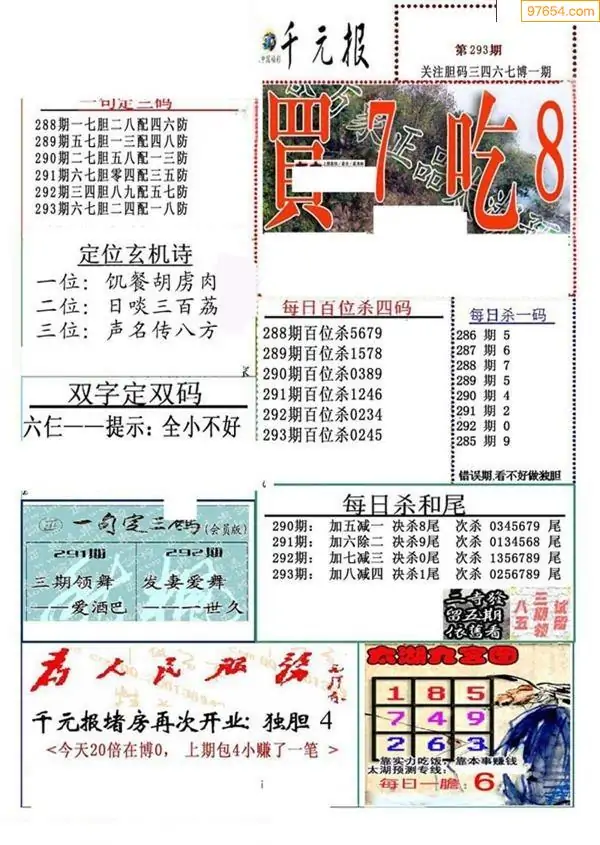 97654.com
千元报
第293期
关注胆码三四六七博一期
一句定三码
288期一七胆二八配四六防
289期五七胆一三配四八防
290期二七胆五八配一三防
291期六七胆零四配三五防
292期三四胆八九配五七防
293期六七胆二四配一八防
買7吃8
定位玄机诗
一位：饥餐胡虏肉
二位：日啖三百荔
三位：声名传八方
双字定双码
六仨——提示：全小不好
每日百位杀四码
288期百位杀5679
289期百位杀1578
290期百位杀0389
291期百位杀1246
292期百位杀0234
293期百位杀0245
每日杀一码
286 期 5
287 期 6
288 期 7
289 期 5
290 期 4
291 期 2
292 期 0
285 期 9
错误期,看不好做独胆
一句定三码(会员版)
291期
三期领舞
——爱酒巴
292期
发妻爱舞
——一世久
每日杀和尾
290期： 加五减一 决杀8尾 次杀 0345679 尾
291期： 加六除二 决杀9尾 次杀 0134568 尾
292期： 加七减三 决杀0尾 次杀 1356789 尾
293期： 加八减四 决杀1尾 次杀 0256789 尾
为人民服务
千元报堵房再次开业：独胆 4
<今天20倍在博0， 上期包4小赚了一笔 >
太湖九宫图
1 8 5
7 4 9
2 6 3
靠实力吃饭，靠本事赚钱
太湖预测专线：
每日一胆：6